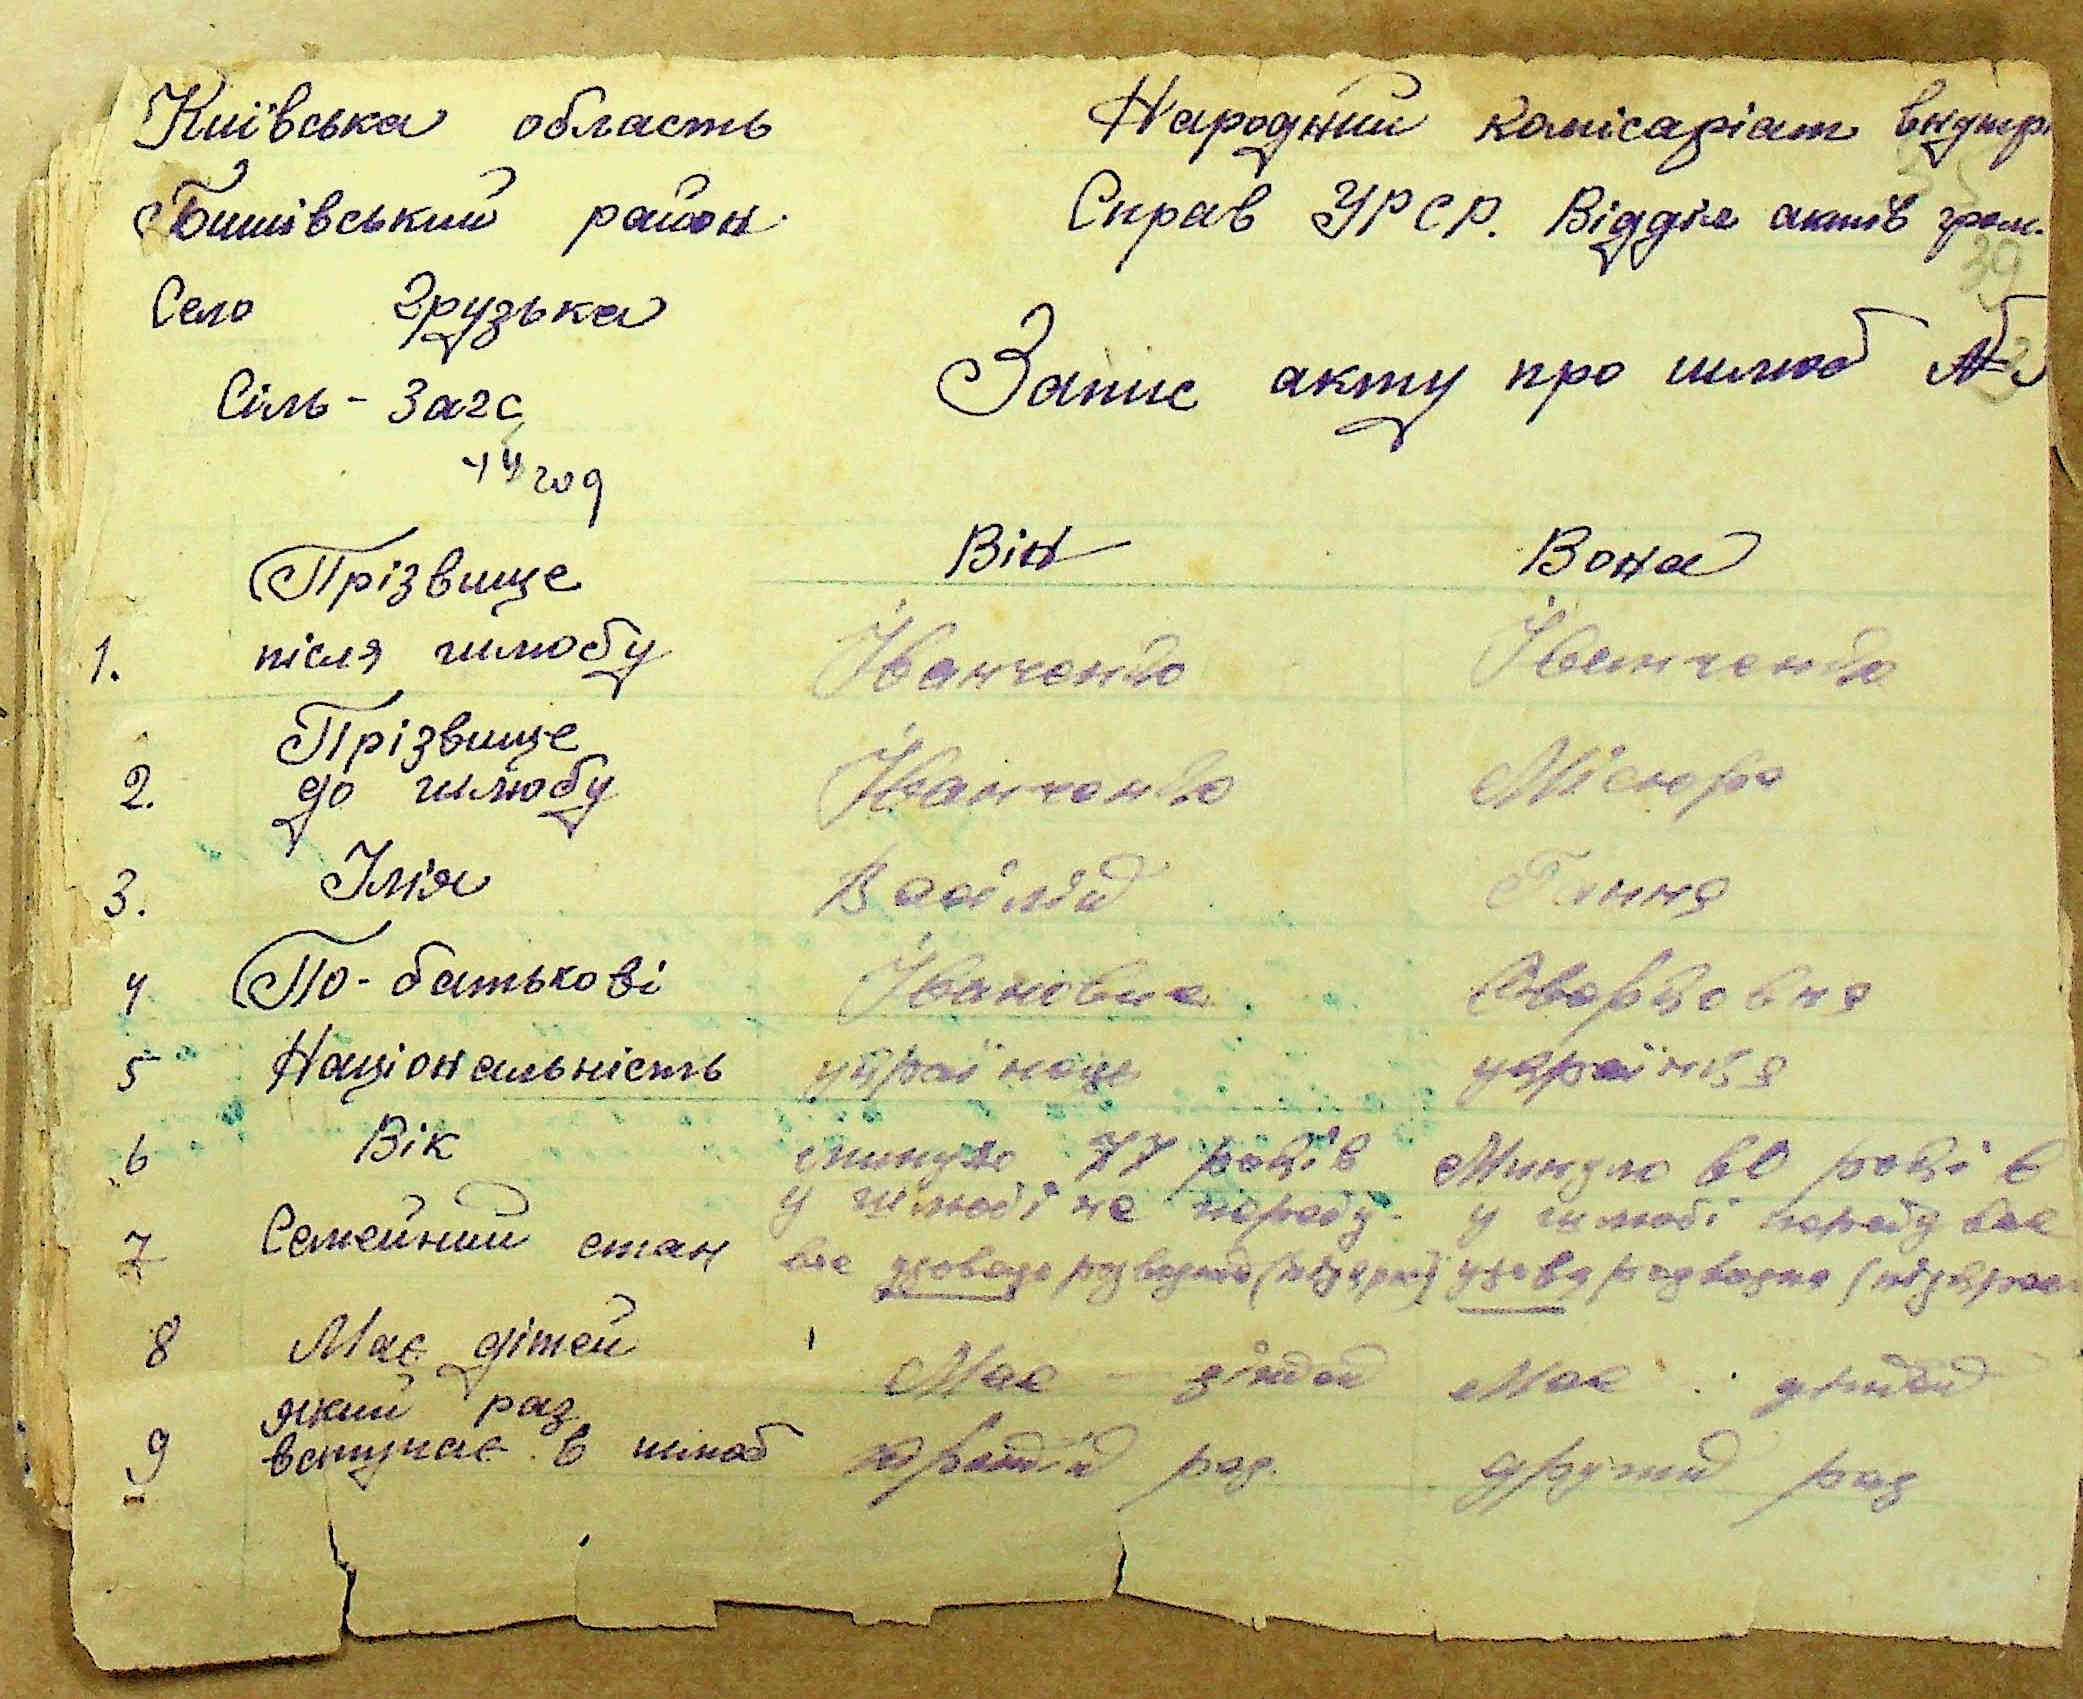 Київська область
Народний комісаріат внутр
Бишівський район
Справ УРСР. Відділ актів гром.
39
Село Грузька
Запис акту про шлюб №
Сіль-Загс
44 год
Він
Вона
Прізвище
1. після шлюбу Іванченко Іванченко
Прізвище
2. до шлюбу Іванченко Місюра
3. Імія Василій Ганна
4 По-батькові Іванович
5 Національність українець українка
6 Вік минуло 77 років Минуло 60 років
у шлюбі не перебу- у шлюбі перебуває
7 Семейний стан ває удовець розведений удова розведена
8 Має дітей Має - дітей Має дітей
який раз
9 вступає в шлюб третій раз. другий раз